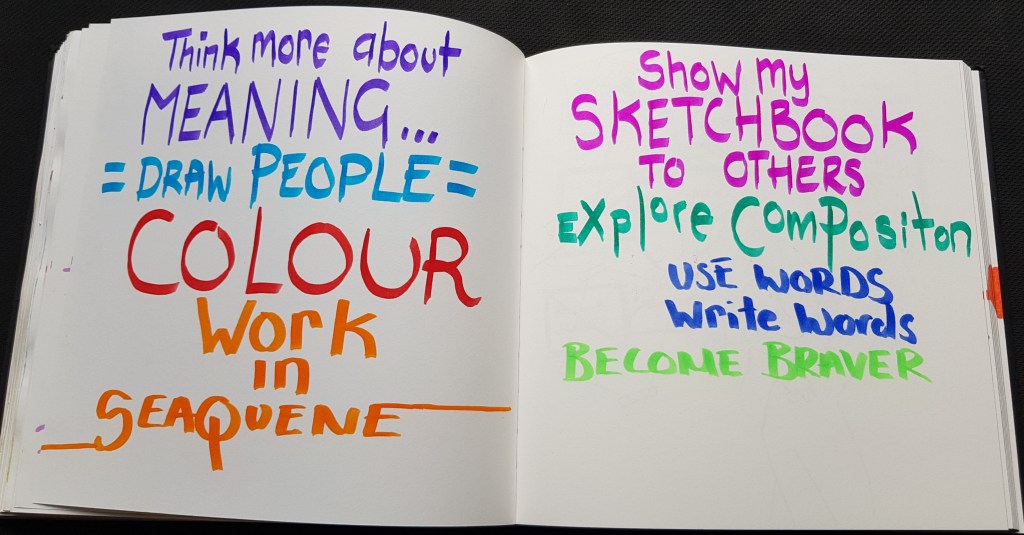 Think more about
MEANING...
=DRAW PEOPLE=
COLOUR
Work
in
SEAQUENE
Show my
SKETCHBOOK
TO OTHERS
EXplore ComPositon
USE WORDS
Write Words
BECOME BRAVER